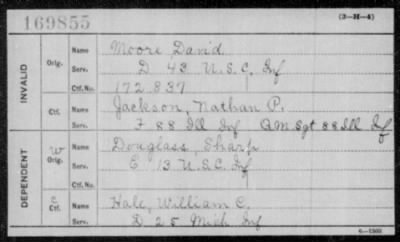 169855
(3-H-4)
INVALID
Orig. Name Moore, David
Serv. D 43 U.S.C. Inf
Ctf. No. 172.837
Ctf. Name Jackson, Nathan P.
Serv. F 88 Ill Inf Q.M. Sgt 88 Ill Inf
DEPENDENT
W Orig. Name Douglass Sharp
Serv. E 13 U.S.C. Inf
Ctf. No.
C Ctf. Name Hale, William C.
Serv. D 25 Mich Inf